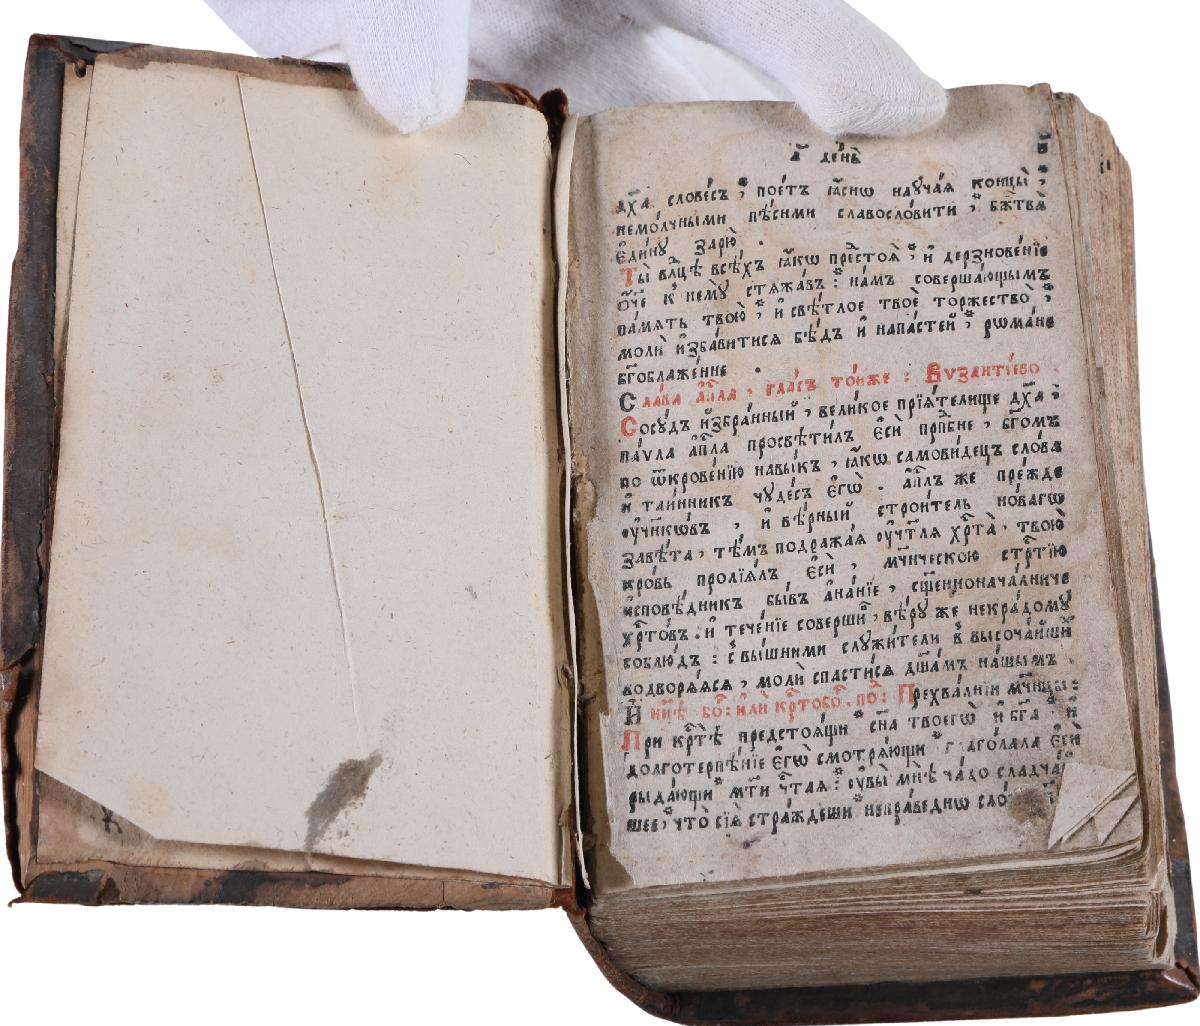 а҃ де́нь
дх҃а слове́съ * пое́тъ ꙗ҆́снѡ науча́ѧ концы̀ ,
немо́лчными пѣ́сньми славосло́вити * бж҃твѧ̀
є҆ди́ну зарю̀ .
Ты̀ влⷣце всѣ́хъ ꙗ҆́кѡ престоѧ̀ * и҆ дерзнове́нїе
ѻ҆́ч҃е к̾ немꙋ̀ стѧжа́въ : на́мъ соверша́ющымъ
па́мѧть твою̀ * и҆ свѣ́тлое твоѐ торжество̀ *
молѝ и҆зба́витисѧ бѣ́дъ и҆ напа́стей * рѡма́не
бг҃облаже́нне .
Сла́ва а҆пⷭ҇ла , гла́съ то́йже : Вузанті́ево .
Сосꙋ́дъ и҆збра́нный , вели́кое прїѧ́телище дх҃а ,
па́ѵла а҆пⷭ҇ла просвѣти́лъ є҆сѝ прпⷣбне , бг҃омъ
по ѿкрове́нїю навы́къ , ꙗ҆́кѡ самови́децъ сло́ва
и҆ та́инникъ чꙋде́съ є҆гѡ̀ . а҆пⷭ҇лъ же пре́жде
ѹ҆ч҃нкѡ́въ , и҆ вѣ́рный строи́тель но́вагѡ
завѣ́та , тѣ́мъ подража́ѧ ѹ҆чт҃лѧ хрⷭ҇та̀ , твою̀
кро́вь пролїѧ́лъ є҆сѝ , мч҃нческою стрⷭ҇тїю
и҆сповѣ́дникъ бы́въ а҆на́нїе , сщ҃енноначалниче
хрⷭ҇то́въ . и҆ тече́нїе соверши́ , вѣ́ру же некра́домꙋ
соблю́дъ : с̾ вы́шними слꙋжи́тели в̾ высоча́йши
водворѧ́ѧсѧ , молѝ спасти́сѧ дш҃а́мъ на́шымъ .
И҆ ны́нѣ бо : и҆лѝ крⷭ҇тобо . по : Прехва́лнїи мч҃ницы :
При крⷭ҇тѣ̀ предстоѧ́щи * сн҃а твоегѡ̀ и҆ бг҃а * и҆
долготерпѣ́нїе є҆гѡ̀ смотрѧ́ющи * глаго́лала є҆сѝ
рыда́ющи * мт҃и чтⷭ҇аѧ : ѹ҆вы̀ мнѣ̀ ча́до сладча́
шее * что̀ сїѧ̀ стра́ждеши * непра́веднѡ